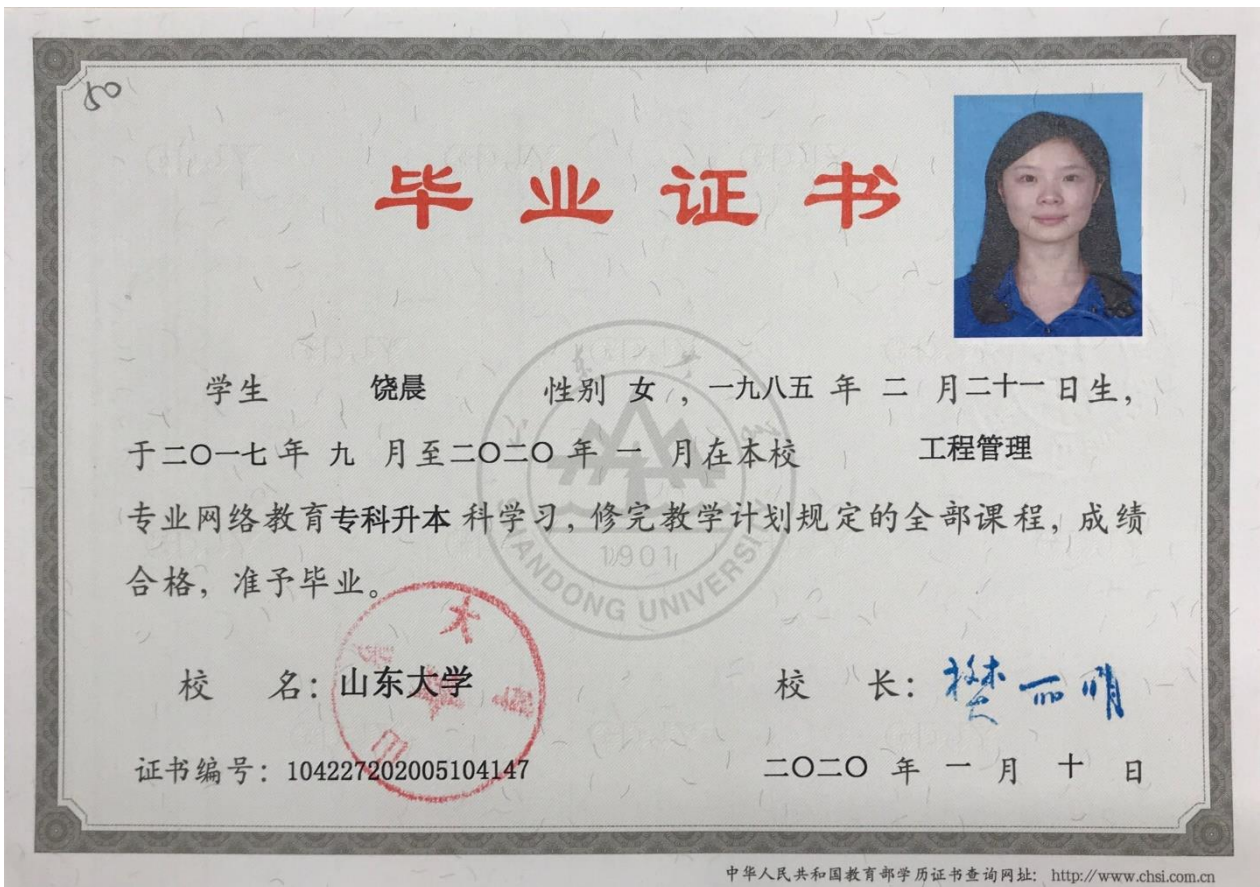 50
毕业证书
学生 饶晨 性别 女 ，一九八五 年 二 月二十一 日生，
于二〇一七 年 九 月至二〇二〇 年 一 月在本校 工程管理
专业网络教育专科升本 科学习，修完教学计划规定的全部课程，成绩
合格，准予毕业。
1901
SHANDONG UNIVERSITY
校 名：山东大学 校 长：樊丽明
证书编号：104227202005104147 二〇二〇 年 一 月 十 日
中华人民共和国教育部学历证书查询网址：http://www.chsi.com.cn